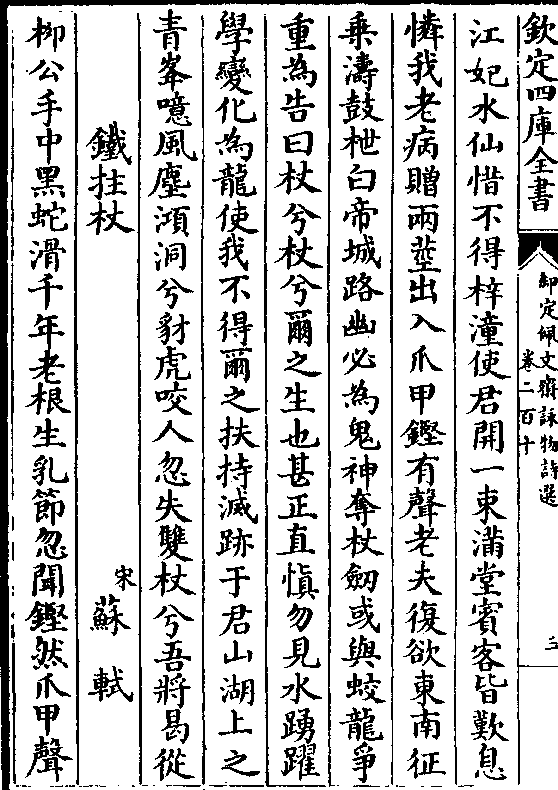 欽定四庫全書
御定佩文齋詠物詩選
卷二百十
三
江妃水仙惜不得梓潼使君開一束滿堂賓客皆歎息
憐我老病贈兩莖出入爪甲鏗有聲老夫復欲東南征
乘濤鼓枻白帝城路幽必為鬼神奪杖劒或與蛟龍爭
重為告曰杖兮杖兮爾之生也甚正直慎勿見水踴躍
學變化為龍使我不得爾之扶持滅跡于君山湖上之
青峯噫風塵澒洞兮豺虎咬人忽失雙杖兮吾將曷從
鐵拄杖
宋蘇軾
柳公手中黑蛇滑千年老根生乳節忽聞鏗然爪甲聲